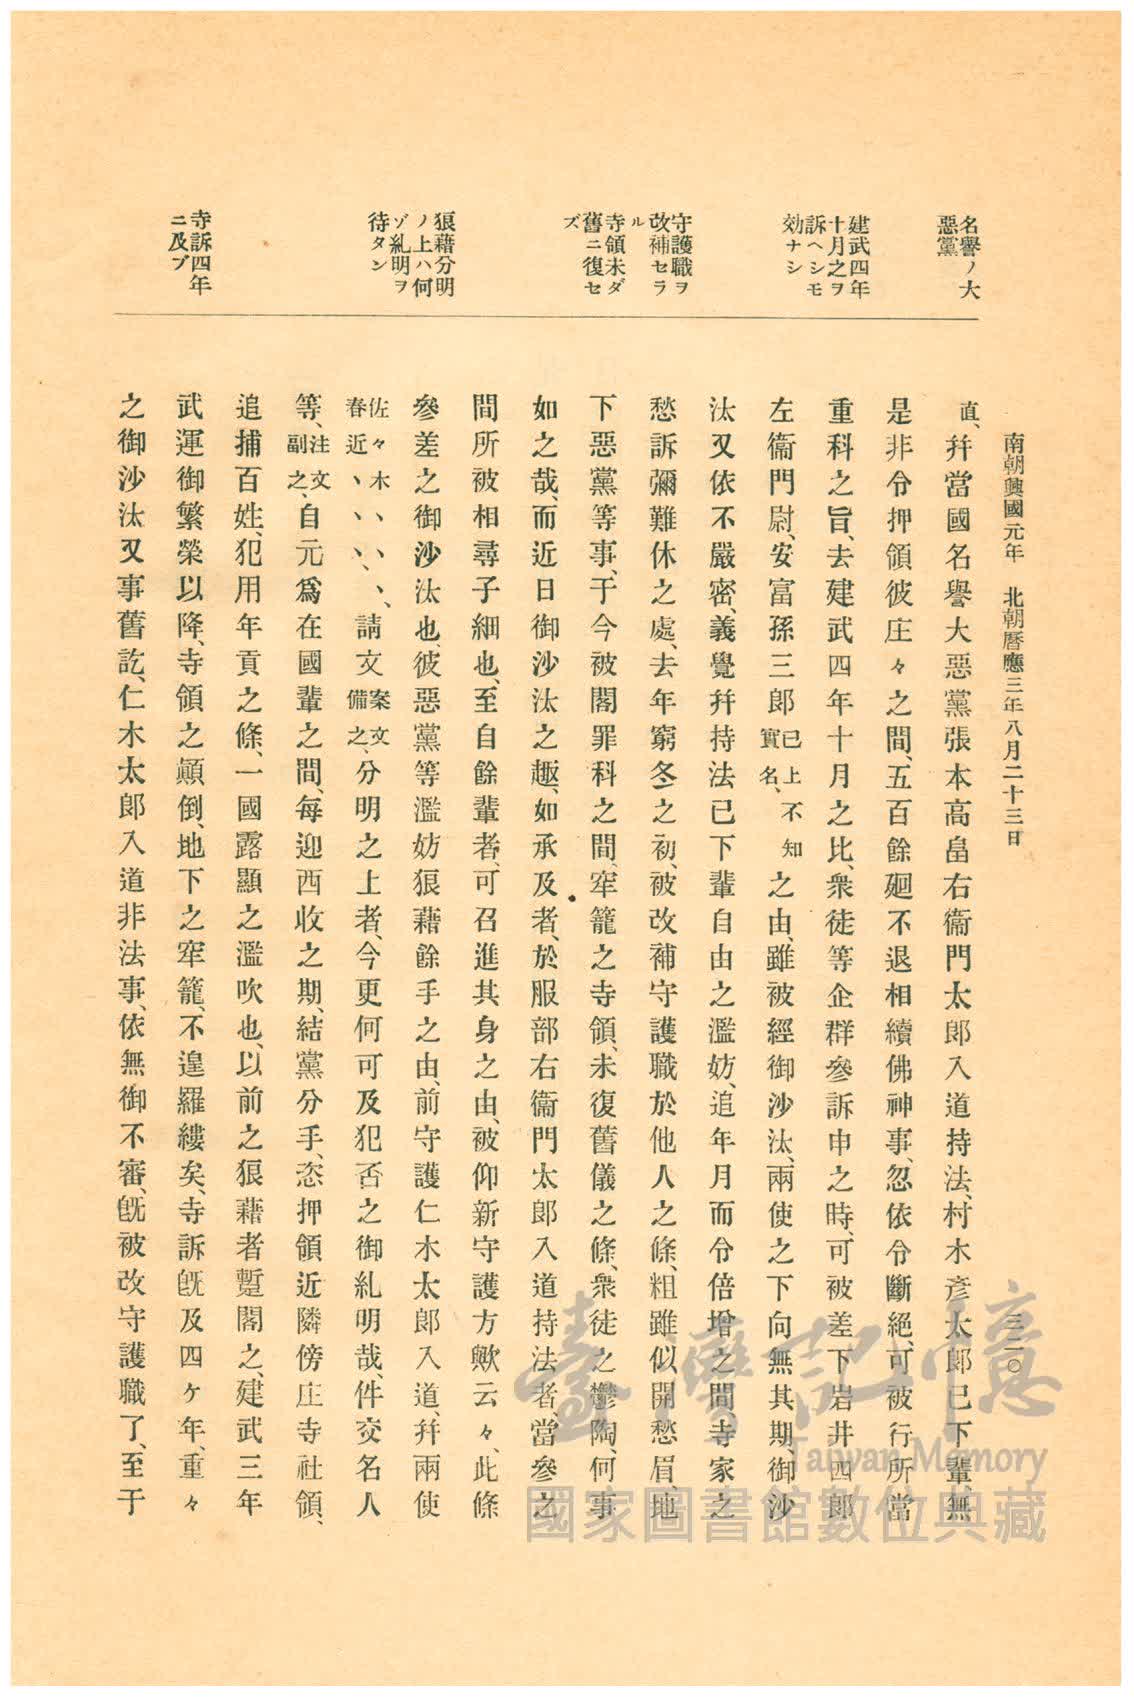 南朝興國元年　北朝曆應三年八月二十三日
三二〇
名譽ノ大
惡黨
建武四年
十月之ヲ
訴ヘシモ
効ナシ
守護職ヲ
改補セラ
ル
寺領未ダ
舊ニ復セ
ズ
狼藉分明
ノ上ハ何
ゾ糺明ヲ
待タン
寺訴四年
ニ及ブ
直、幷當國名譽大惡黨張本高畠右衞門太郎入道持法、村木彥太郎已下輩、無
是非令押領彼庄々之間、五百餘廻不退相續佛神事、忽依令斷絕、可被行所當
重科之旨、去建武四年十月之比、衆徒等企群參訴申之時、可被差下岩井四郎
左衞門尉、安富孫三郎已上不知實名、之由、雖被經御沙汰、兩使之下向無其期、御沙
汰又依不嚴密、義覺幷持法已下輩自由之濫妨、追年月而令倍增之間、寺家之
愁訴彌難休之處、去年窮冬之初、被改補守護職於他人之條、粗雖似開愁眉、地
下惡黨等事、于今被閣罪科之間、窂籠之寺領、未復舊儀之條、衆徒之鬱陶、何事
如之哉、而近日御沙汰之趣、如承及者、於服部右衞門太郎入道持法者、當參之
間所被相尋子細也、至自餘輩者、可召進其身之由、被仰新守護方歟云々、此條
參差之御沙汰也、彼惡黨等濫妨狼藉餘手之由、前守護仁木太郎入道、幷兩使
佐々木、、、、春近、、、、請文案文備之、分明之上者、今更何可及犯否之御糺明哉、件交名人
等、注文副之、自元爲在國輩之間、每迎西收之期、結黨分手、恣押領近隣傍庄寺社領、
追捕百姓、犯用年貢之條、一國露顯之濫吹也、以前之狼藉者蹔閣之、建武三年
武運御繁榮以降、寺領之顚倒、地下之窂籠、不遑羅縷矣、寺訴旣及四ケ年、重々
之御沙汰又事舊訖、仁木太郎入道非法事、依無御不審、旣被改守護職了、至于
臺灣記憶
Taiwan Memory
國家圖書館數位典藏